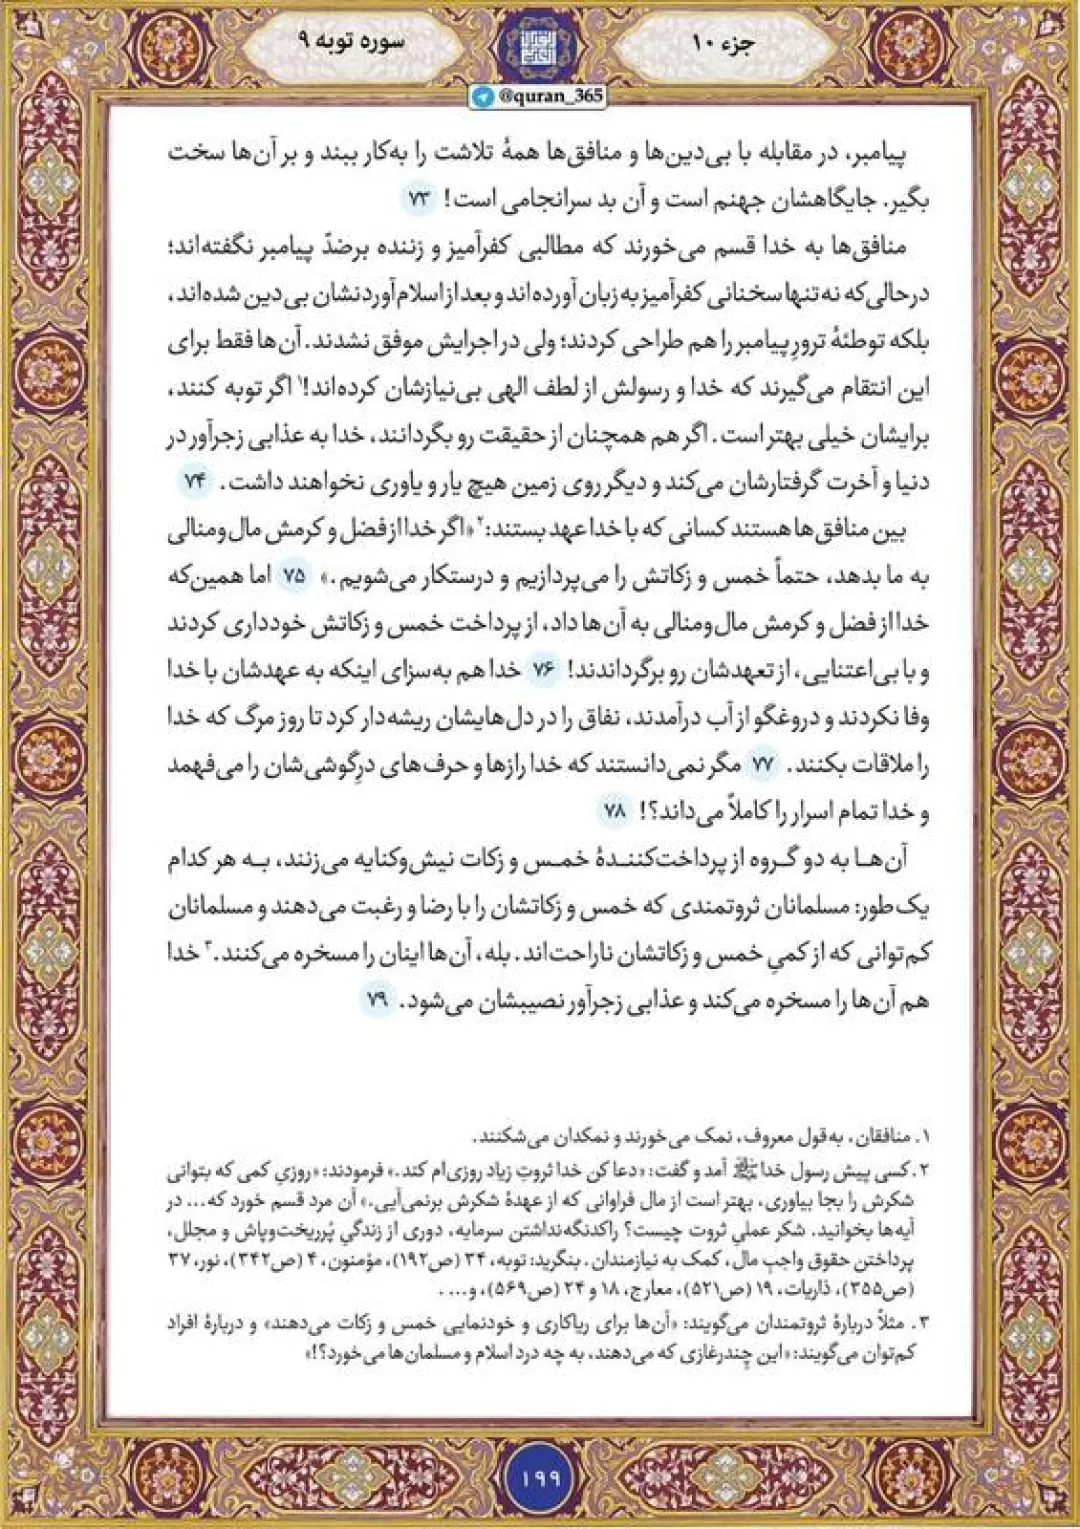 جزء ۱۰
سوره توبه ۹
@quran_365
پیامبر، در مقابله با بی‌دین‌ها و منافق‌ها همهٔ تلاشت را به‌کار ببند و بر آن‌ها سخت
بگیر. جایگاهشان جهنم است و آن بد سرانجامی است! ۷۳
منافق‌ها به خدا قسم می‌خورند که مطالبی کفرآمیز و زننده برضدّ پیامبر نگفته‌اند؛
درحالی‌که نه‌تنها سخنانی کفرآمیز به زبان آورده‌اند و بعد از اسلام‌آوردنشان بی‌دین شده‌اند،
بلکه توطئهٔ ترورِ پیامبر را هم طراحی کردند؛ ولی در اجرایش موفق نشدند. آن‌ها فقط برای
این انتقام می‌گیرند که خدا و رسولش از لطف الهی بی‌نیازشان کرده‌اند!۱ اگر توبه کنند،
برایشان خیلی بهتر است. اگر هم همچنان از حقیقت رو بگردانند، خدا به عذابی زجرآور در
دنیا و آخرت گرفتارشان می‌کند و دیگر روی زمین هیچ یار و یاوری نخواهند داشت. ۷۴
بین منافق‌ها هستند کسانی که با خدا عهد بستند:۲ «اگر خدا از فضل و کرمش مال‌ومنالی
به ما بدهد، حتماً خمس و زکاتش را می‌پردازیم و درستکار می‌شویم.» ۷۵ اما همین‌که
خدا از فضل و کرمش مال‌ومنالی به آن‌ها داد، از پرداخت خمس و زکاتش خودداری کردند
و با بی‌اعتنایی، از تعهدشان رو برگرداندند! ۷۶ خدا هم به‌سزای اینکه به عهدشان با خدا
وفا نکردند و دروغگو از آب درآمدند، نفاق را در دل‌هایشان ریشه‌دار کرد تا روز مرگ که خدا
را ملاقات بکنند. ۷۷ مگر نمی‌دانستند که خدا رازها و حرف‌های درِگوشی‌شان را می‌فهمد
و خدا تمام اسرار را کاملاً می‌داند؟! ۷۸
آن‌ها به دو گروه از پرداخت‌کنندهٔ خمس و زکات نیش‌وکنایه می‌زنند، به هر کدام
یک‌طور: مسلمانان ثروتمندی که خمس و زکاتشان را با رضا و رغبت می‌دهند و مسلمانان
کم‌توانی که از کمیِ خمس و زکاتشان ناراحت‌اند. بله، آن‌ها اینان را مسخره می‌کنند.۳ خدا
هم آن‌ها را مسخره می‌کند و عذابی زجرآور نصیبشان می‌شود. ۷۹
۱. منافقان، به‌قول معروف، نمک می‌خورند و نمکدان می‌شکنند.
۲. کسی پیش رسول خداﷺ آمد و گفت: «دعا کن خدا ثروتِ زیاد روزی‌ام کند.» فرمودند: «روزیِ کمی که بتوانی
شکرش را بجا بیاوری، بهتر است از مال فراوانی که از عهدهٔ شکرش برنمی‌آیی.» آن مرد قسم خورد که... در
آیه‌ها بخوانید. شکر عملیِ ثروت چیست؟ راکدنگه‌نداشتن سرمایه، دوری از زندگیِ پُرریخت‌وپاش و مجلل،
پرداختن حقوق واجبِ مال، کمک به نیازمندان. بنگرید: توبه، ۳۴ (ص۱۹۲)، مؤمنون، ۴ (ص۳۴۲)، نور، ۳۷
(ص۳۵۵)، ذاریات، ۱۹ (ص۵۲۱)، معارج، ۱۸ و ۲۴ (ص۵۶۹)، و... .
۳. مثلاً دربارهٔ ثروتمندان می‌گویند: «آن‌ها برای ریاکاری و خودنمایی خمس و زکات می‌دهند» و دربارهٔ افراد
کم‌توان می‌گویند: «این چِندرغازی که می‌دهند، به چه درد اسلام و مسلمان‌ها می‌خورد؟!»
۱۹۹